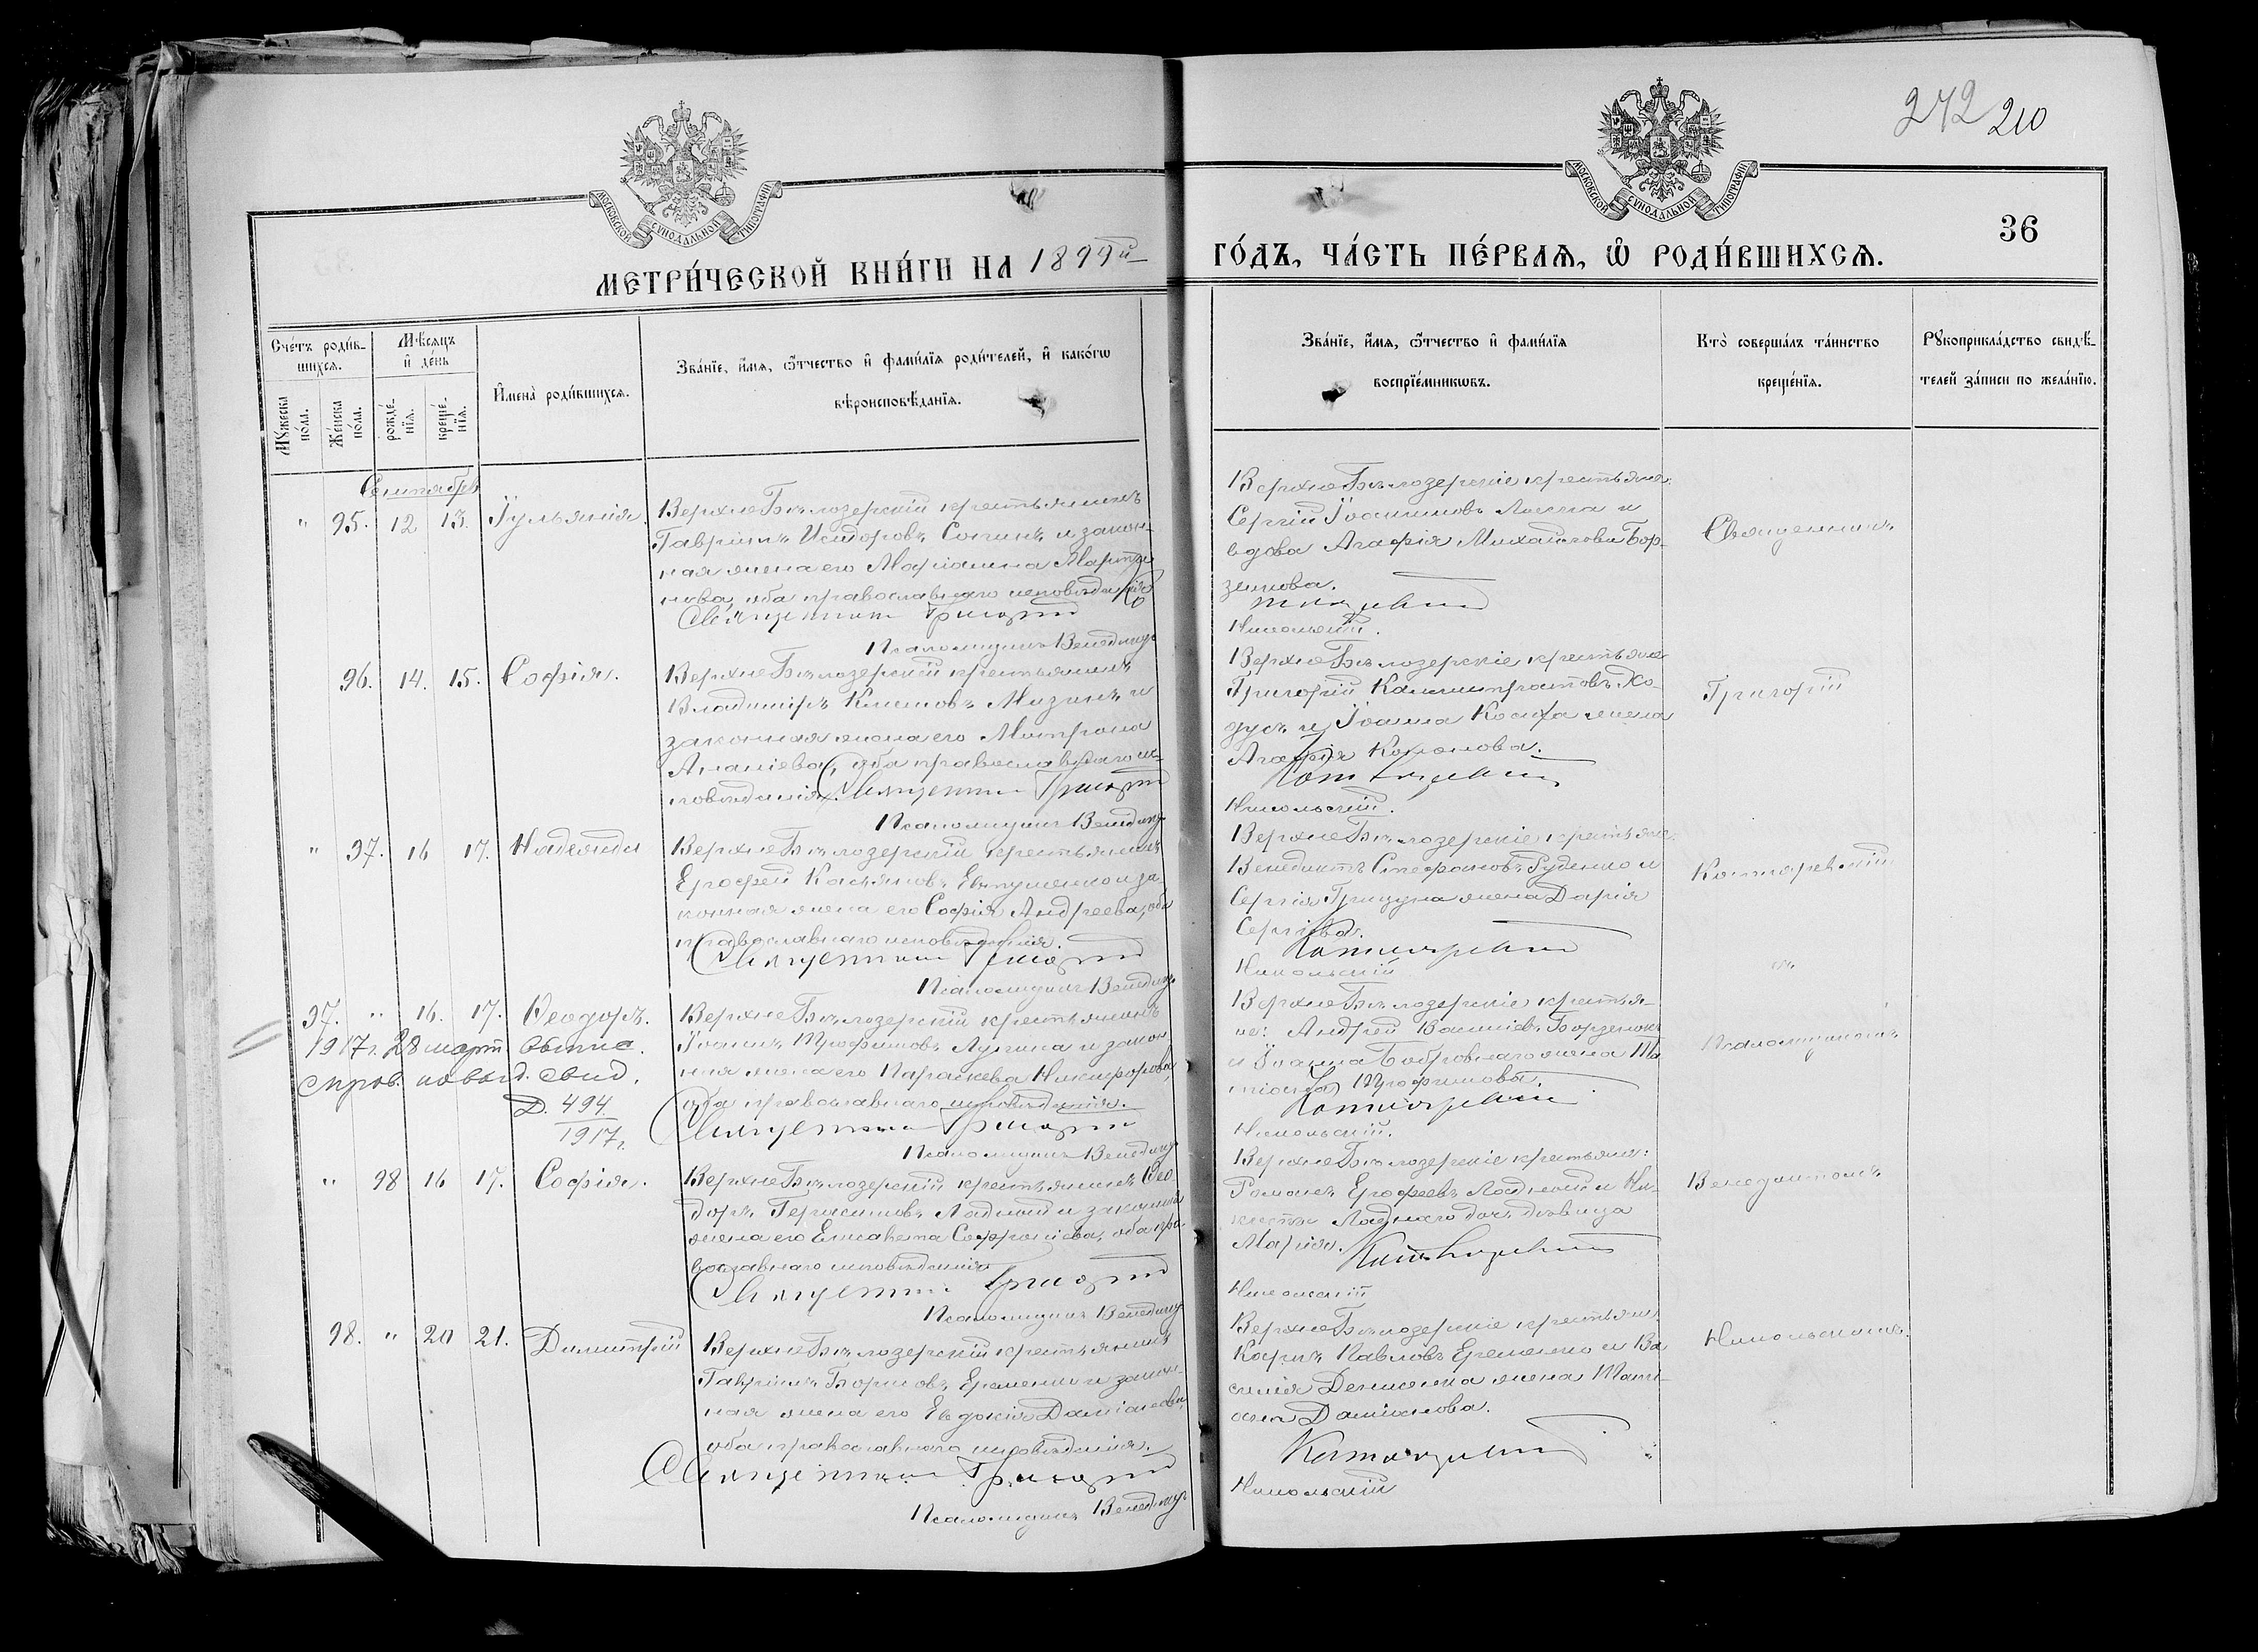 242 210
МОСКОВСКОЙ СѴНОДАЛЬНОЙ ТИПОГРАФІИ
МОСКОВСКОЙ СѴНОДАЛЬНОЙ ТИПОГРАФІИ
36
МЕТРИ́ЧЕСКОЙ КНИ́ГИ НА 1899й
ГО́ДЪ, ЧА́СТЬ ПЕ́РВАѦ, Ѡ҆ РОДИ́ВШИХСѦ.
Сче́тъ роди́в-
шихсѧ.
Мѣ́сѧцъ
и҆ де́нь
Мꙋ́жеска
по́ла.
Же́нска
по́ла.
рожде́-
нїѧ.
креще́-
нїѧ.
И҆мена̀ роди́вшихсѧ.
Зва́нїе, и҆́мѧ, ѻ҆́тчество и҆ фами́лїѧ роди́телей, и҆ како́гѡ
вѣроисповѣ́данїѧ.
Зва́нїе, и҆́мѧ, ѻ҆́тчество и҆ фами́лїѧ
воспрїе́мникѡвъ.
Кто̀ соверша́лъ та́инство
креще́нїѧ.
Рꙋкоприкла́дство свидѣ́-
телей за́писи по жела́нїю.
Сентябрь
" 95. 12 13. Іуліанія.
Верхне Бѣлозерскій крестьянинъ
Гавріилъ Исидоровъ и закон-
ная жена его Маріанна Марти-
нова, оба православнаго исповѣданія
Священникъ Григорій
Псаломщикъ Венедиктъ
Верхне Бѣлозерскіе крестьяне:
Сергій Іоанновъ и
вдова Агафія Михайлова Бор-
зенкова.
Никольскій.
Священникъ
96. 14. 15. Софія.
Верхне Бѣлозерскій крестьянинъ
Владиміръ Мизинъ и
законная жена его Митрона
Ананіева, оба православнаго ис-
повѣданія. Священникъ Григорій
Псаломщикъ Венедиктъ
Верхне Бѣлозерскіе крестьяне
Григорій Каллистратовъ Хо-
дусъ и Іоанна жена
Агафія Кононова.
Никольскій.
Григорій
" 97. 16 17. Надежда
Верхне Бѣлозерскій крестьянинъ
Ерофей Касьяновъ Евтушенко и за-
конная жена его Софія Андреева, оба
православнаго исповѣданія.
Священникъ Григорій
Псаломщикъ Венедиктъ
Верхне Бѣлозерскіе крестьяне
Венедиктъ Стефановъ Руденко и
Сергія Грицуна жена Дарія
Сергіева.
Никольскій
97. " 16. 17. Ѳеодоръ.
Верхне Бѣлозерскій крестьянинъ
Іоаннъ Трофимовъ и закон-
ная жена его Параскева Никифорова,
оба православнаго исповѣданія.
Священникъ Григорій
Псаломщикъ Венедиктъ
1917 г. 28 март.
свид.
Д. 494
1917 г.
Верхне Бѣлозерскіе крестья-
не: Андрей Борзенковъ
и Іоанна Бобровнаго жена Та-
тіана Трофимова.
Никольскій.
Псаломщикомъ
" 98 16 17. Софія.
Верхне Бѣлозерскій крестьянинъ Ѳео-
доръ Герасимовъ Ладный и законная
жена его Елисавета Софроніева, оба пра-
вославнаго исповѣданія
Священникъ Григорій
Псаломщикъ Венедиктъ
Верхне Бѣлозерскіе крестьяне:
Романъ Ерофеевъ Ладный и Ни-
киты Ладнаго дочь дѣвица
Марія.
Никольскій
Венедиктомъ
98. " 20 21. Димитрій
Верхне Бѣлозерскій крестьянинъ
Гавріилъ Борисовъ Еременко и закон-
ная жена его Евдокія Даміанова,
оба православнаго исповѣданія.
Священникъ Григорій
Псаломщикъ Венедиктъ
Верхне Бѣлозерскіе крестьяне
Карпъ Павловъ Еременко и Ва-
силія Денисенка жена Тати-
ана Даміанова.
Никольскій
Никольскимъ.